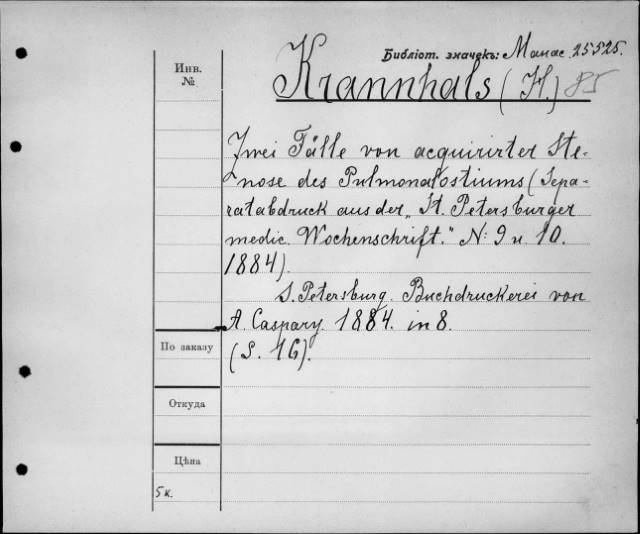 Библіот. значекъ: Манас. 25525.
Инв.
№
Krannhals (H.) 85
Zwei Fälle von acquirirter Ste-
nose des Pulmonalostiums (Sepa-
ratabdruck aus der „St. Petersburger
medic. Wochenschrift." N: 9 u. 10.
1884).
S. Petersburg. Buchdruckerei von
A. Caspary. 1884. in 8.
По заказу
(S. 16).
Откуда
Цѣна
5 к.